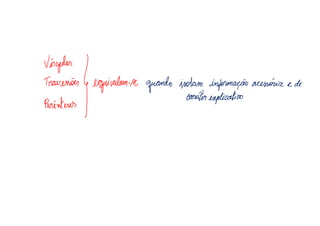 Vírgulas
Travessões equivalem-se quando isolam informação acessória e de
caráter explicativo
Parênteses